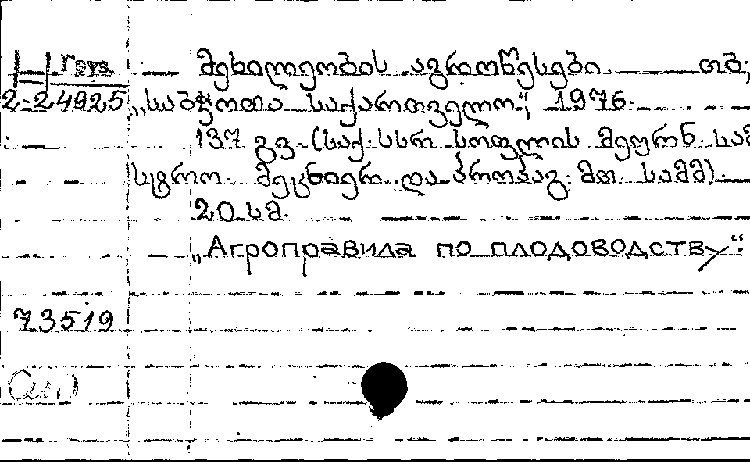 Груз. მეხილეობის აგროწესები. თბ.,
2-24925 „საბჭოთა საქართველო“, 1976.
137 გვ. (საქ. სსრ სოფლის მეურნ. სამ
სტრო. მეცნიერ. და პროპაგ. მთ. სამმ).
20 სმ.
„Агроправила по плодоводству“.
73519